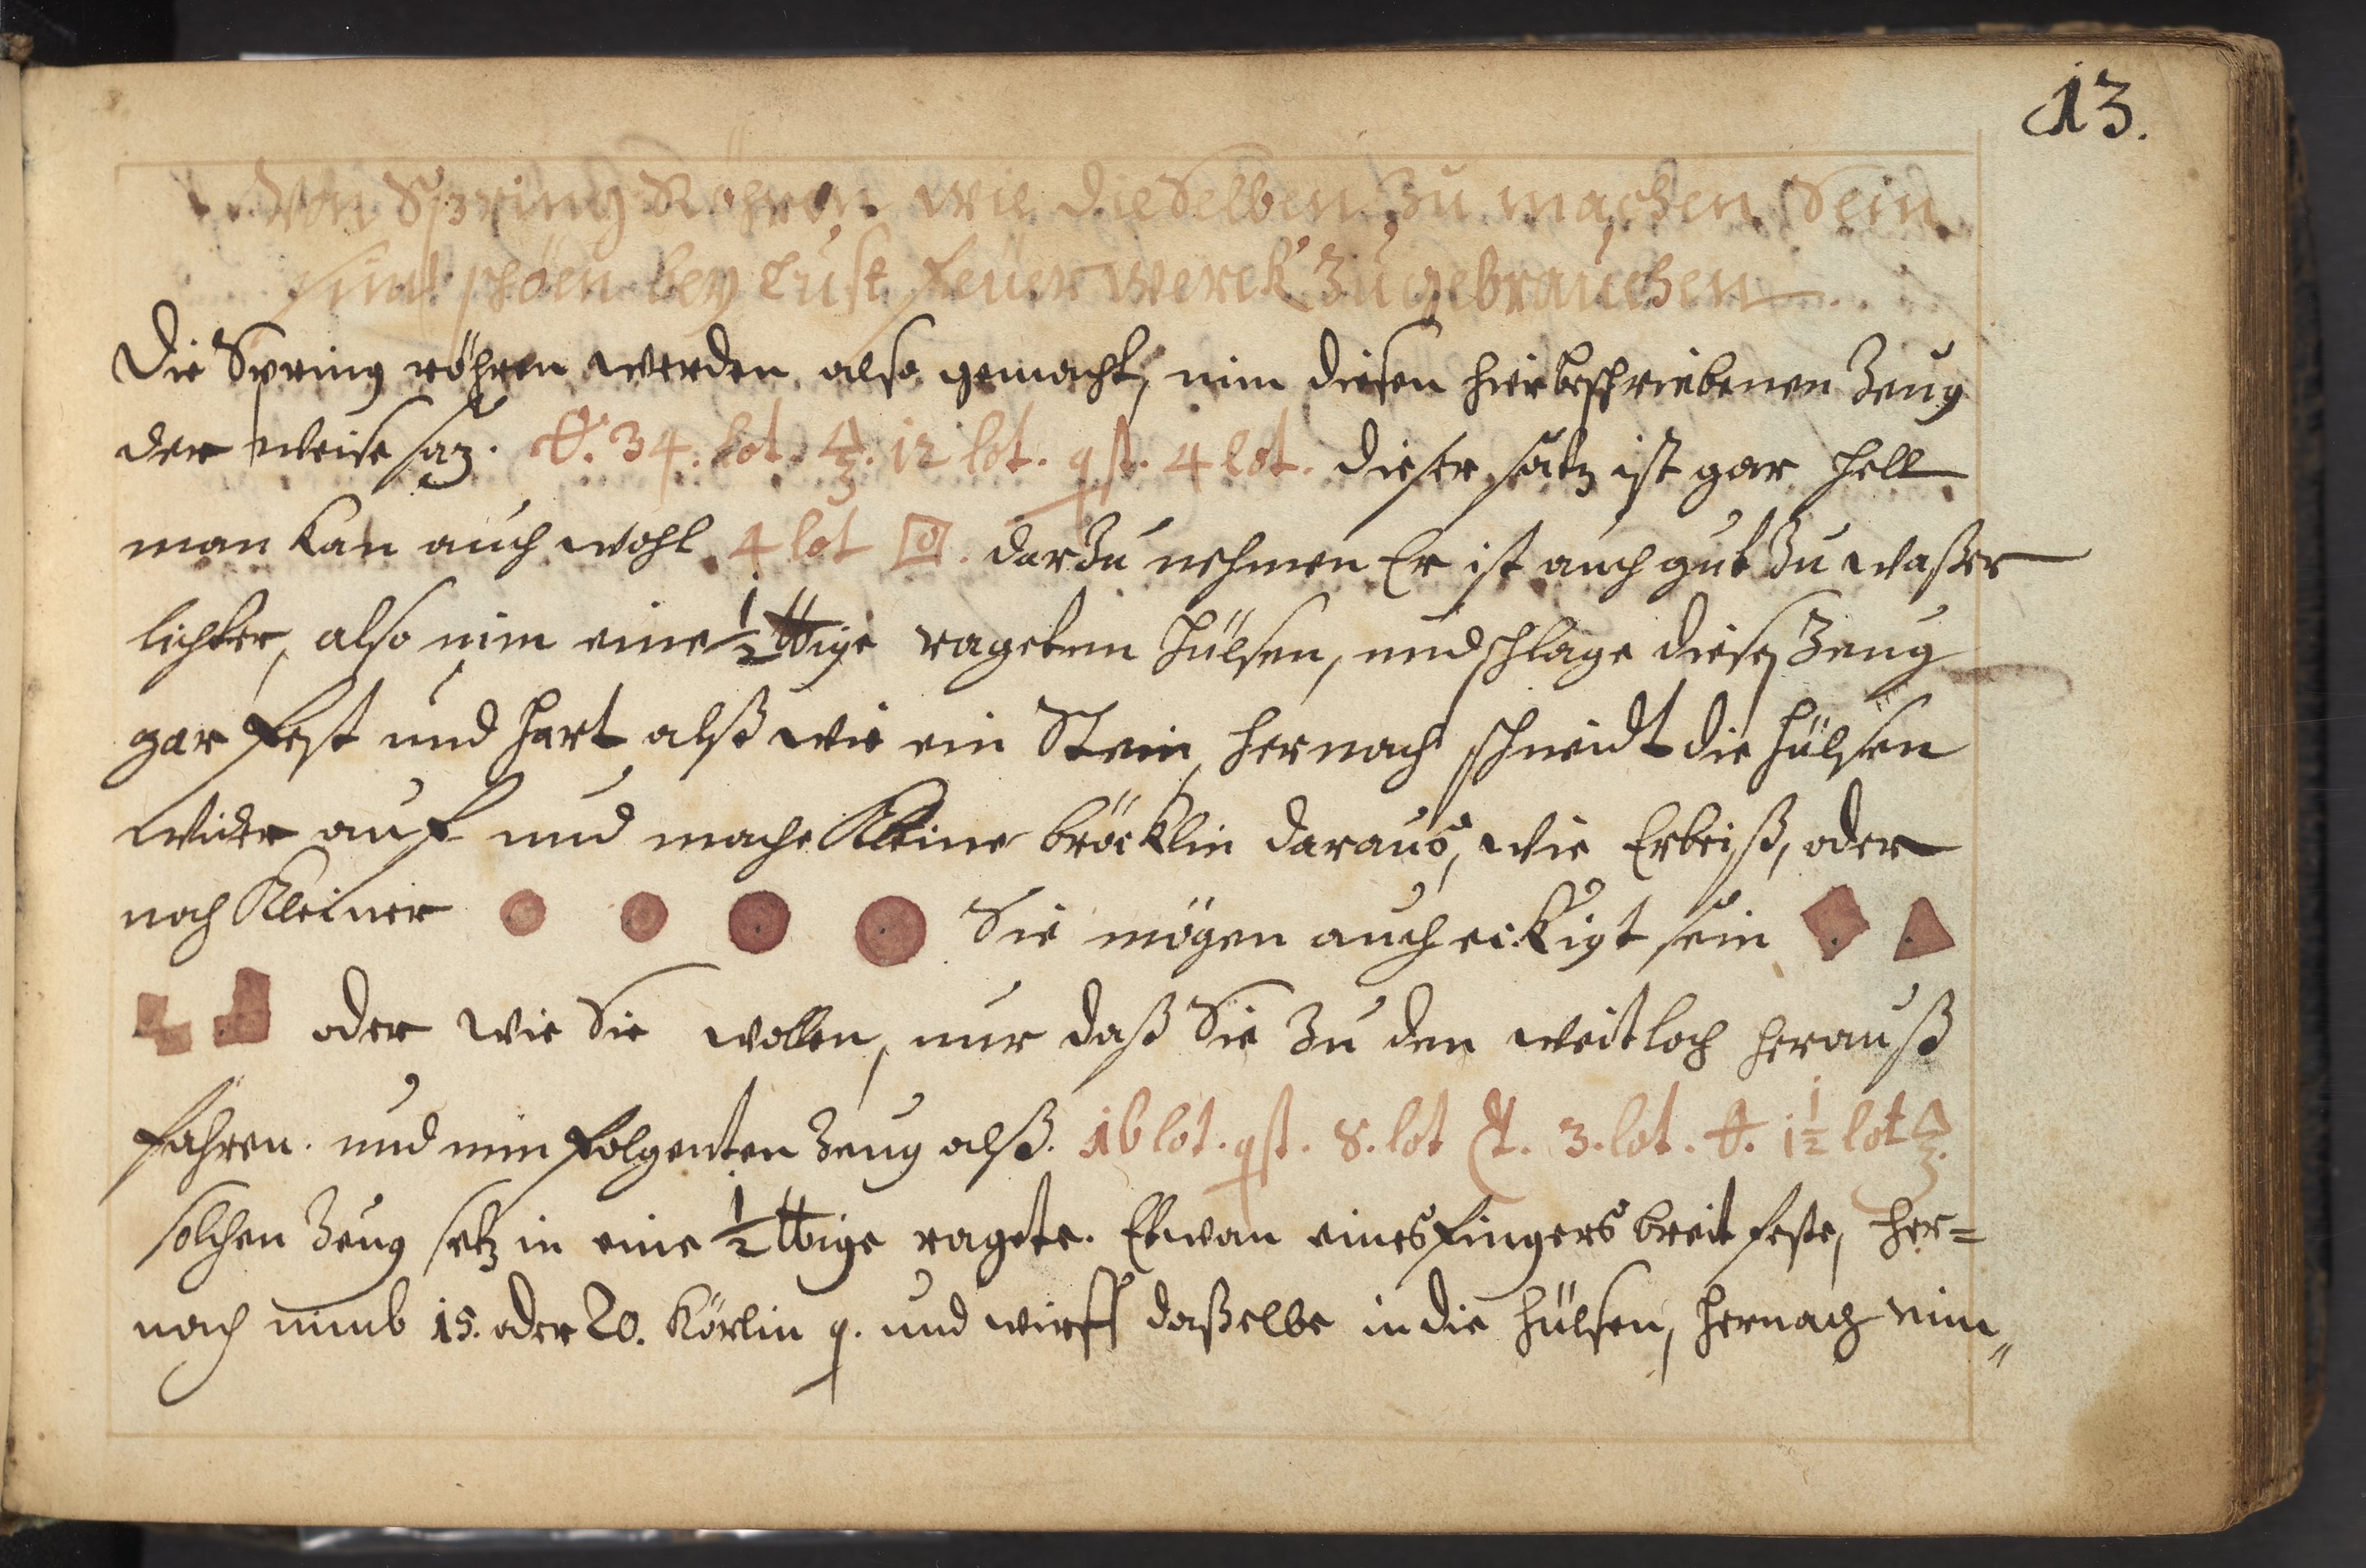 13.
Von Spring Röhren wie die Selben zu machen Sein
sind schöen bey Lust feuer werck zu gebrauchen.
Die Spring röhren werden also gemacht, nim diesen hier beschriebenen Zeug
der weise saz. 34. lot. 12 lot. 4 lot. dieser satz ist gar hell
man kan auch wohl 4 lot darzu nehmen Er ist auch gut zu waßer
lichter, also nim eine ½ ℔ige rageten Hülsen, und schlage dieses Zeug
gar fest und hart alß wie ein Stein, hernach schneidt die Hülsen
wider auf und mache kleine bröcklin daraus, wie Erbeiß, oder
noch kleiner Sie mögen auch eckigt sein
oder wie Sie wollen, nur daß Sie zu den weitloch herauß
fahren. und nim folgenten Zeug alß. 16 lot. 8. lot 3. lot. 1½ lot
solchen Zeug setz in eine ½ ℔ige ragete. Etwan eines fingers breit feste, her=
nach nimb 15. oder 20. körlin p. und wirff daßelbe in die Hülsen, hernach nim„